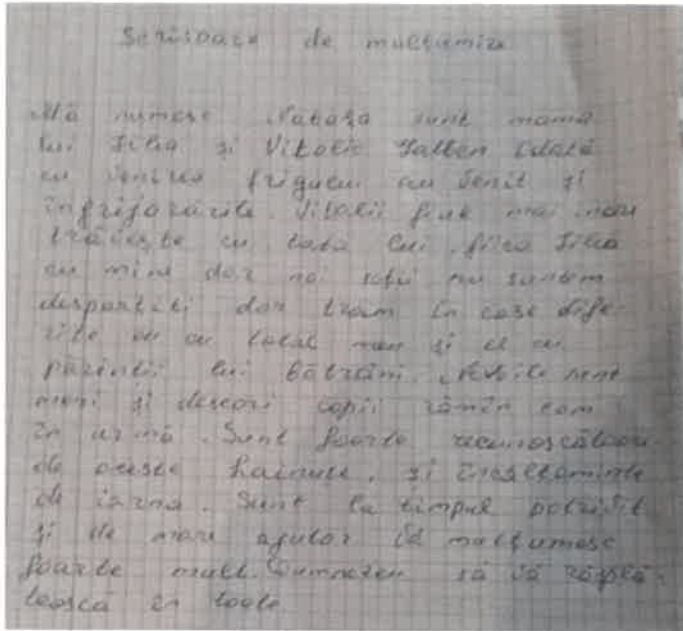 Scrisoare de mulțumire
Mă numesc Natașa sunt mama
lui Iilia și Vitalie Galben Odată
cu venirea frigului au venit și
îngrijorările. Vitalii fiul mai mare
trăiește cu tata lui. fiica Iilia
cu mine dar noi soții nu suntem
despartiti dar trăim în case dife-
rite eu cu tatal meu și el cu
părinții lui bătrâni. Nevoile sunt
mari și deseori copii rămîn cam
în urmă. Sunt foarte recunoscătoare
de aceste hainuțe, și încălțăminte
de iarna. Sunt la timpul potrivit
și de mare ajutor Vă mulțumesc
foarte mult. Dumnezeu să vă răsplă-
tească în toate